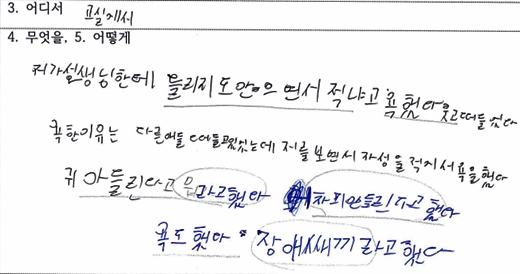 3. 어디서 교실에서
4. 무엇을, 5. 어떻게
제가 선생님한테 들리지도안으면서 적냐고 욕했다 웃고떠들었다
욕한이유는 다른애들 떠들고있었는데 저를 보면서 자성을 적지서 욕을했다
귀 아들린다고 뭐라고했다 어차피안들린다고 했다
욕도 했다 장애쌔끼라고 했다